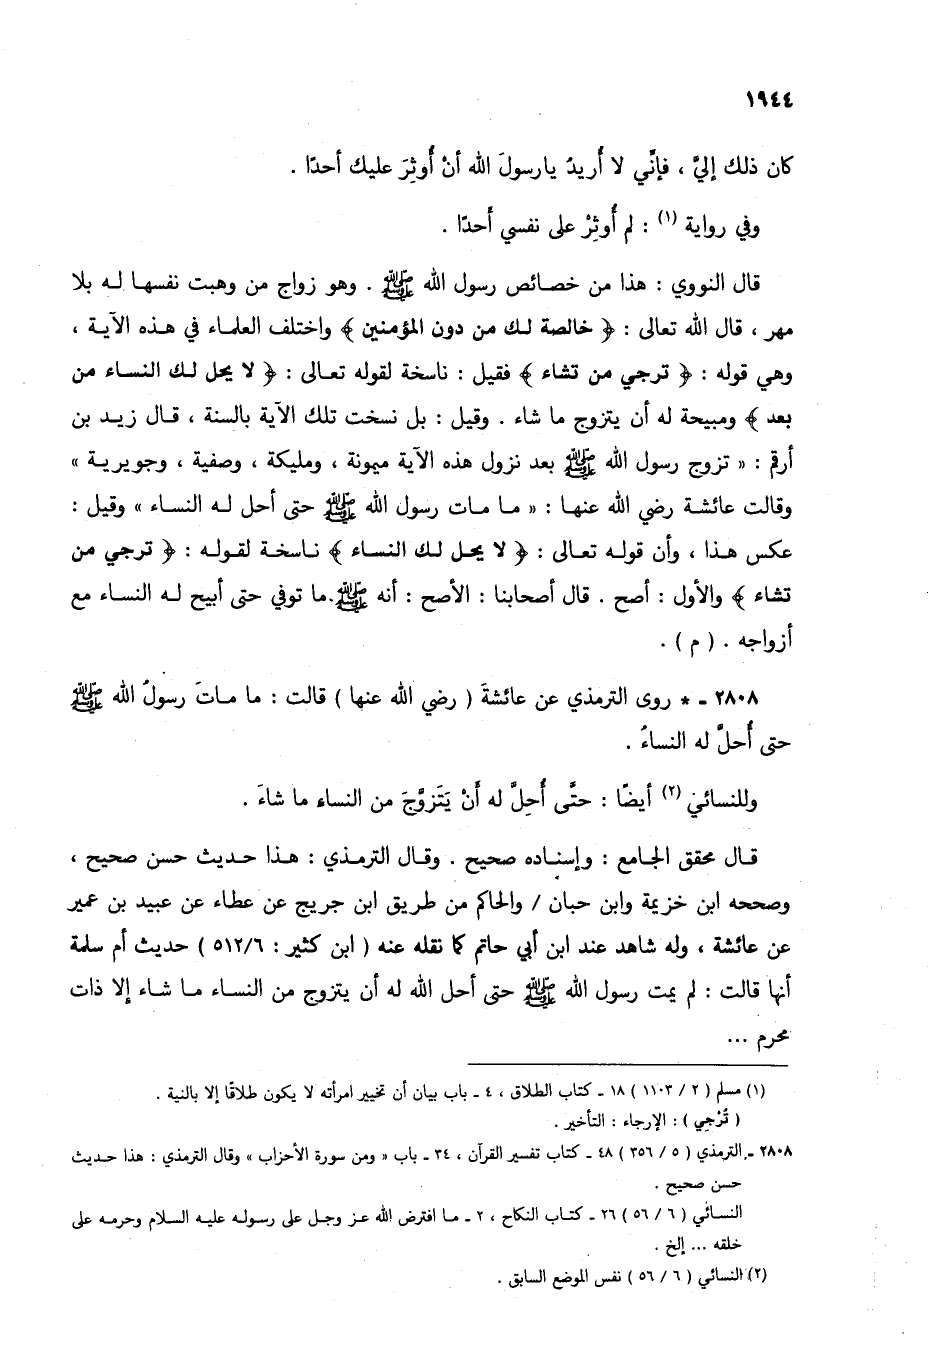 ١٩٤٤
كان ذلك إليَّ ، فإنَّي لا أُريدُ يارسولَ الله أنْ أُوثِرَ عليك أحدًا .
وفي رواية (١) : لم أُوثِرْ على نفسي أَحدًا .
قال النووي : هذا من خصائص رسول الله ﷺ . وهو زواج من وهبت نفسها له بلا
مهر ، قال الله تعالى : ﴿ خالصة لك من دون المؤمنين ﴾ واختلف العلماء في هذه الآية ،
وهي قوله : ﴿ ترجي من تشاء ﴾ فقيل : ناسخة لقوله تعالى : ﴿ لا يحل لك النساء من
بعد ﴾ ومبيحة له أن يتزوج ما شاء . وقيل : بل نسخت تلك الآية بالسنة ، قال زيد بن
أرقم : « تزوج رسول الله ﷺ بعد نزول هذه الآية ميمونة ، ومليكة ، وصفية ، وجويرية »
وقالت عائشة رضي الله عنها : « ما مات رسول الله ﷺ حتى أحل له النساء » وقيل :
عكس هذا ، وأن قوله تعالى : ﴿ لا يحل لك النساء ﴾ ناسخة لقوله : ﴿ ترجي من
تشاء ﴾ والأول : أصح . قال أصحابنا : الأصح : أنه ﷺ ما توفي حتى أبيح له النساء مع
أزواجه . ( م ) .
٢٨٠٨ ـ * روى الترمذي عن عائشةَ ( رضي الله عنها ) قالت : ما ماتَ رسولُ الله ﷺ
حتى أُحلَّ له النساءُ .
وللنسائي (٢) أيضًا : حتَّى أُحِلَّ له أَنْ يَتَزوَّجَ من النساء ما شاءَ .
قال محقق الجامع : وإسناده صحيح . وقال الترمذي : هذا حديث حسن صحيح ،
وصححه ابن خزيمة وابن حبان / والحاكم من طريق ابن جريج عن عطاء عن عبيد بن عمير
عن عائشة ، وله شاهد عند ابن أبي حاتم كما نقله عنه ( ابن كثير : ٥١٢/٦ ) حديث أم سلمة
أنها قالت : لم يمت رسول الله ﷺ حتى أحل الله له أن يتزوج من النساء ما شاء إلا ذات
محرم ...
(١) مسلم ( ٢ / ١١٠٣ ) ١٨ ـ كتاب الطلاق ، ٤ ـ باب بيان أن تخيير امرأته لا يكون طلاقًا إلا بالنية .
( تُرْجِي ) : الإرجاء : التأخير .
٢٨٠٨ ـ الترمذي ( ٥ / ٣٥٦ ) ٤٨ ـ كتاب تفسير القرآن ، ٣٤ ـ باب « ومن سورة الأحزاب » وقال الترمذي : هذا حديث
حسن صحيح .
النسائي ( ٦ / ٥٦ ) ٢٦ ـ كتاب النكاح ، ٢ ـ ما افترض الله عز وجل على رسوله عليه السلام وحرمه على
خلقه ... إلخ .
(٢) النسائي ( ٦ / ٥٦ ) نفس الموضع السابق .